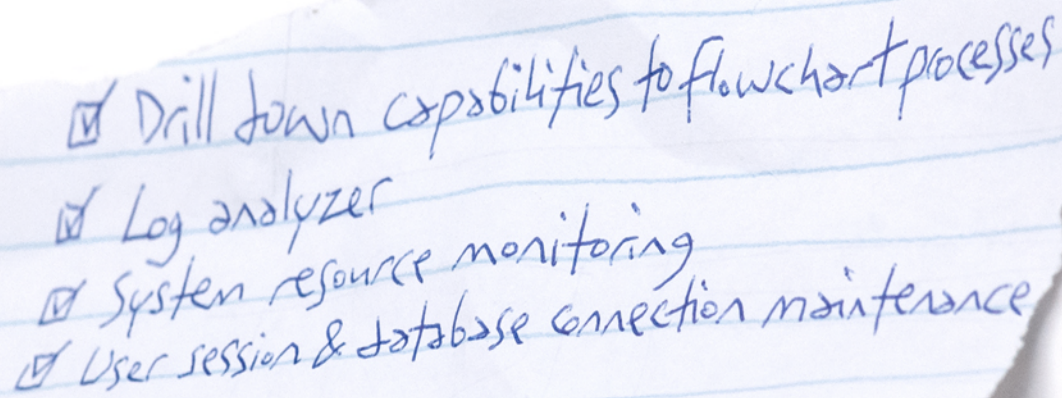 ☑ Drill down capabilities to flowchart processes
☑ Log analyzer
☑ System resource monitoring
☑ User session & database connection maintenance